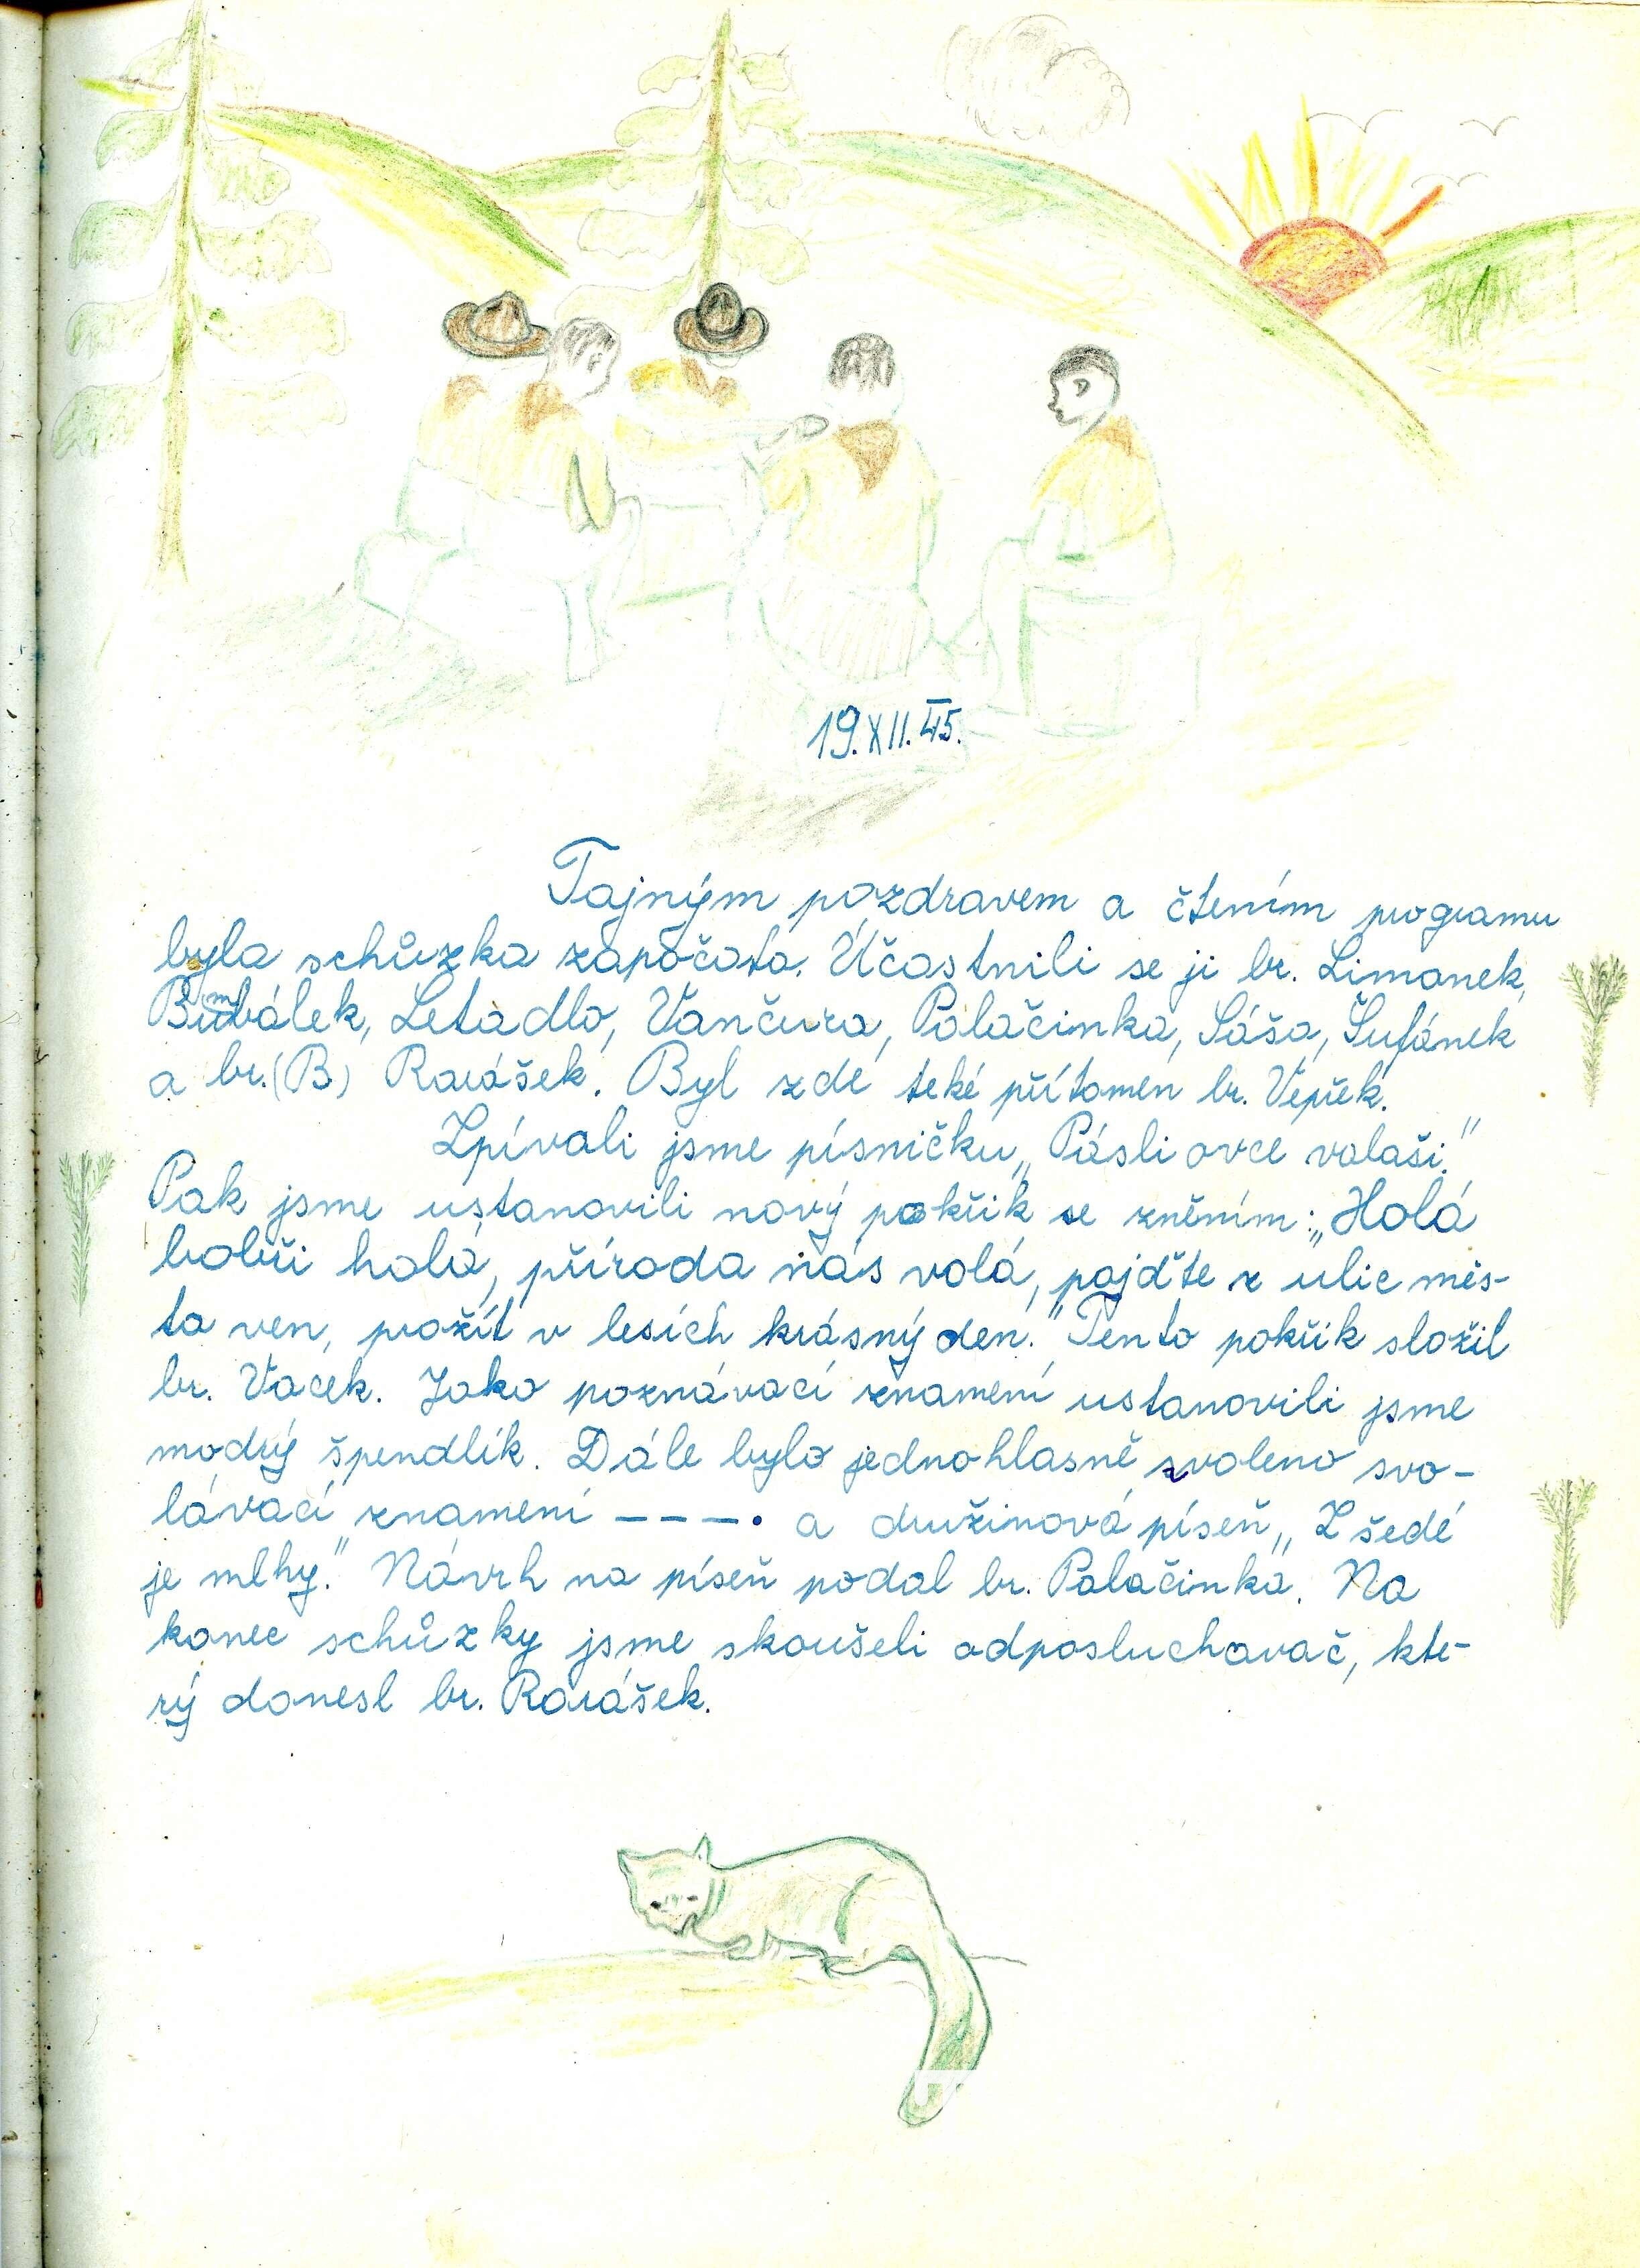 19. XII. 45.
Tajným pozdravem a čtením programu
byla schůzka započata. Účastnili se jí br. Limonek,
Bumbálek, Letadlo, Vančura, Palačinka, Sáša, Šufánek
a br. (B) Rarášek. Byl zde teké přítomen br. Vepřek.
Zpívali jsme písničku „Pásli ovce valaši."
Pak jsme ustanovili nový pokřik se zněním: „Holá
bobři holá, příroda nás volá, pojďte z ulic měs-
ta ven, prožít v lesích krásný den." Tento pokřik složil
br. Vacek. Jako poznávací znamení ustanovili jsme
modrý špendlík. Dále bylo jednohlasně zvoleno svo-
lávací znamení – – – – • a družinová píseň „Z šedé
je mlhy." Návrh na píseň podal br. Palačinka. Na
konec schůzky jsme skoušeli odposluchavač, kte-
rý donesl br. Rarášek.